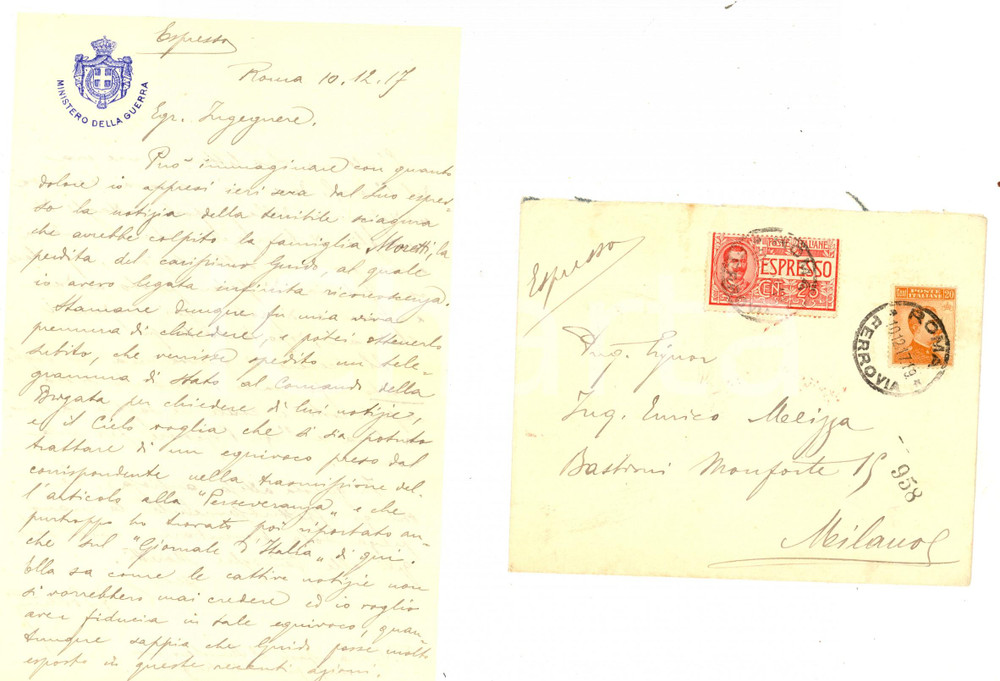 Espresso
MINISTERO DELLA GUERRA
Roma 10.12.17
Egr. Ingegnere.
Può immaginare con quanto
dolore io appresi ieri sera dal Suo espres-
so la notizia della terribile sciagura
che avrebbe colpito la famiglia Moretti, la
perdita del carissimo Guido, al quale
io avevo legata infinita riconoscenza.
Stamane dunque fu mia viva
premura di chiedere, e potei ottenerlo
subito, che venisse spedito un tele-
gramma di Stato al Comando della
Brigata per chiedere di lui notizie,
e il Cielo voglia che si sia potuto
trattare di un equivoco preso dal
corrispondente nella trasmissione del-
l'articolo alla "Perseveranza" e che
purtroppo ho trovato poi riportato an-
che sul "Giornale d'Italia" di qui.
Ella sa come le cattive notizie non
si vorrebbero mai credere ed io voglio
aver fiducia in tale equivoco, quan-
tunque sappia che Guido fosse molto
esposto in queste recenti azioni.
Espresso
POSTE ITALIANE
ESPRESSO
CENT. 25
POSTE ITALIANE 20
ROMA
10.12.17.19
FERROVIA
Ing. Enrico Melizza
Bastioni Monforte 15
958
Milano